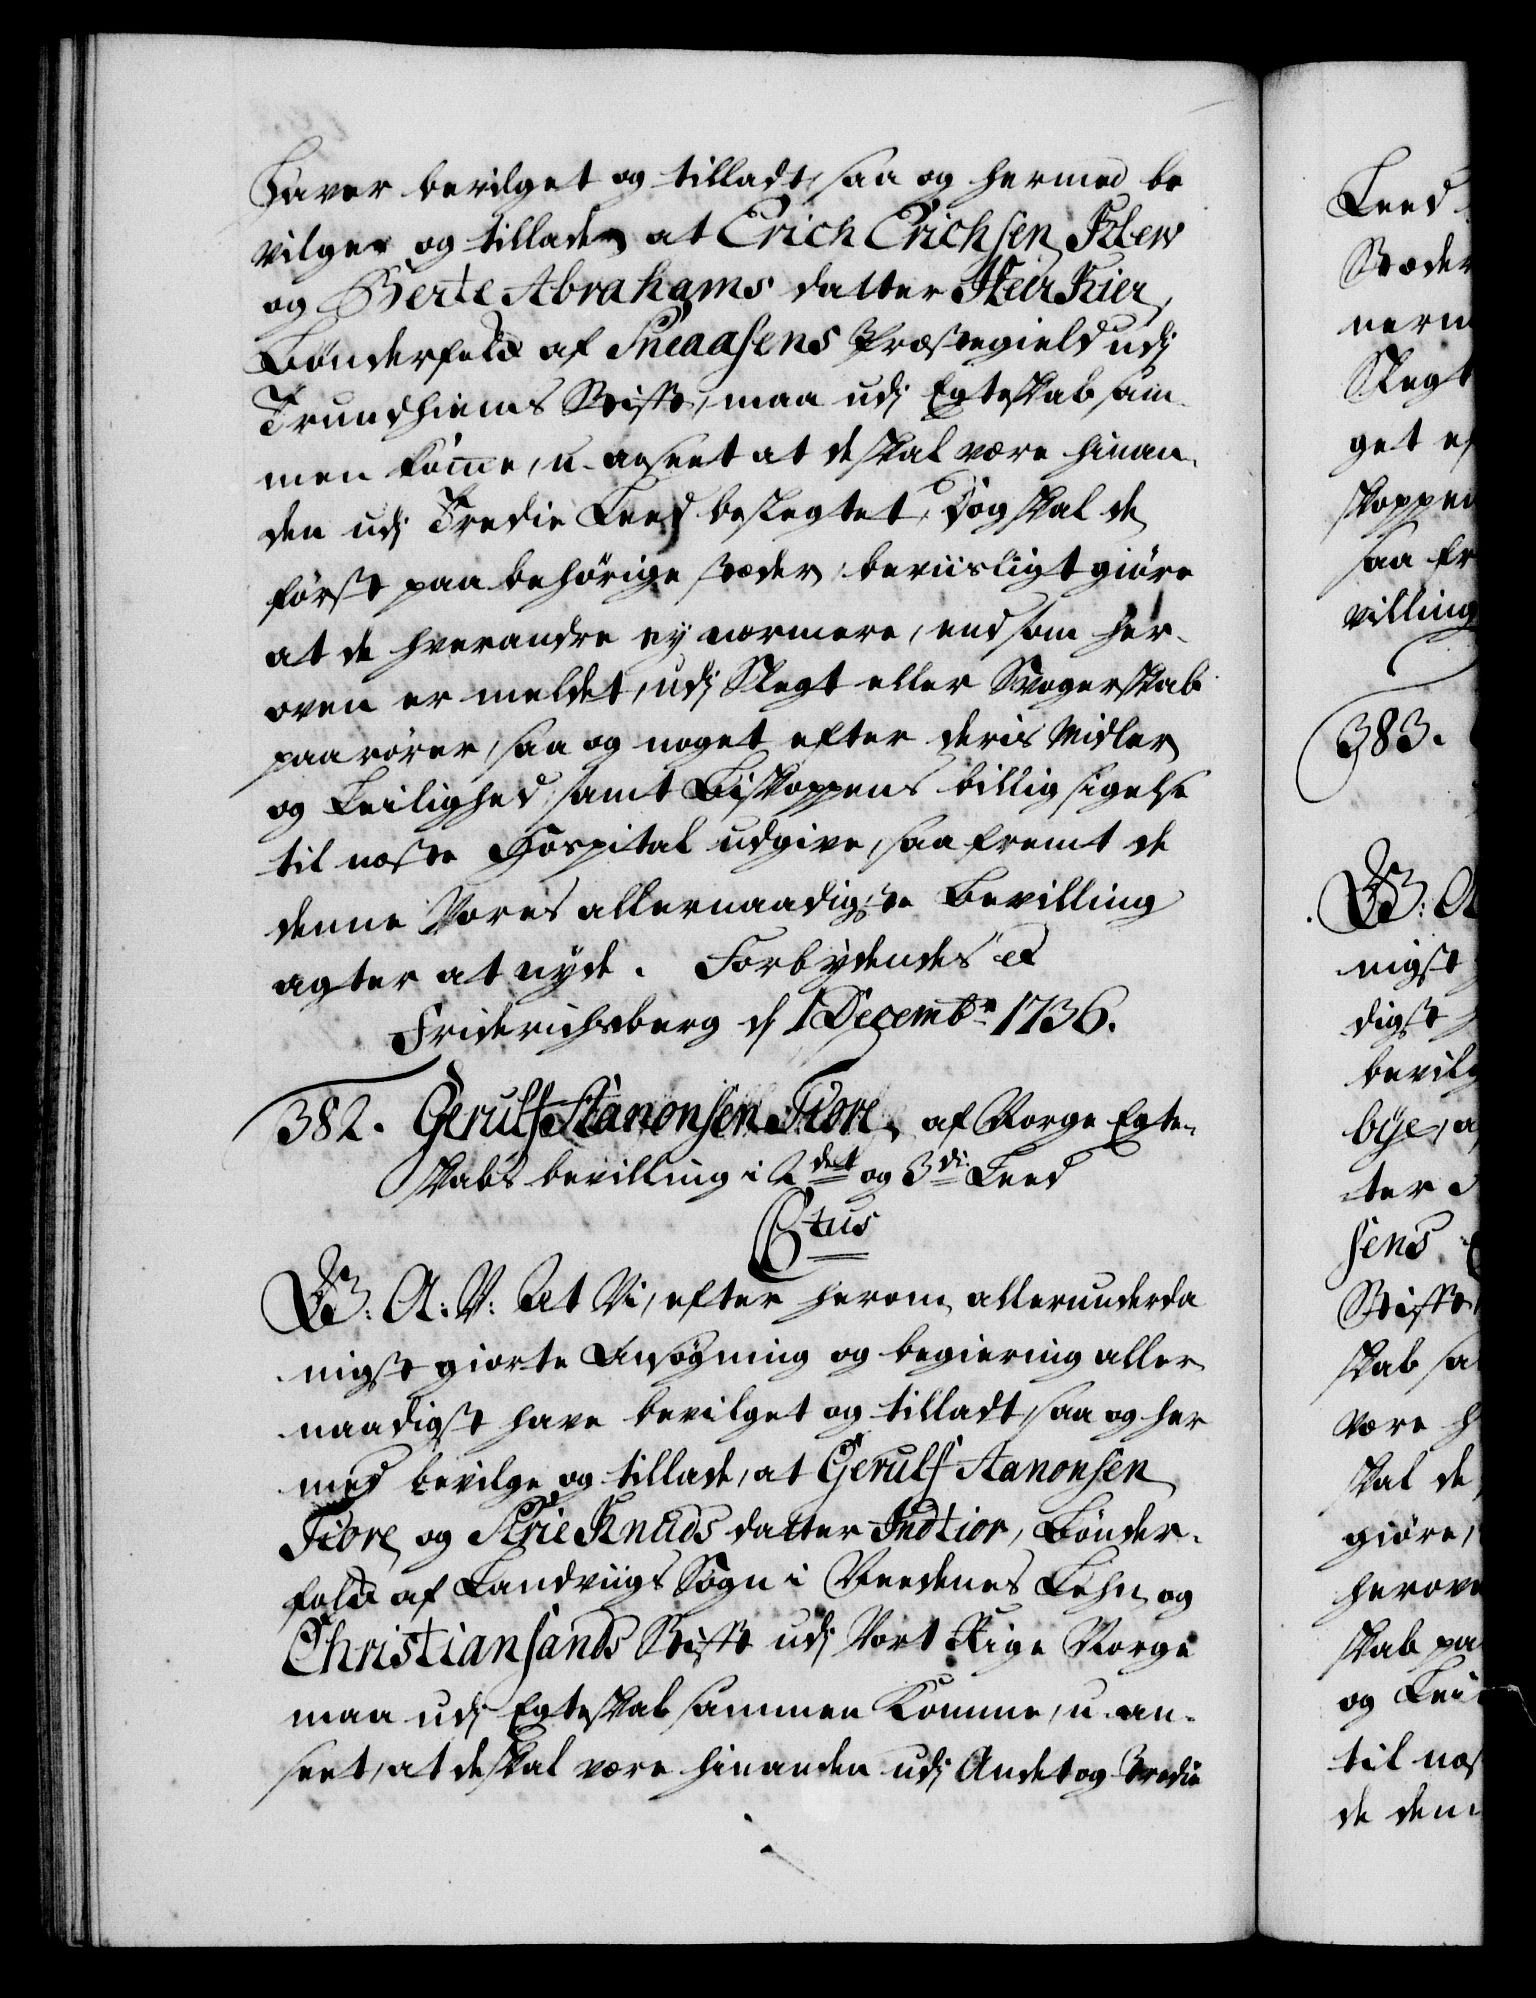 haver bevilget og tilladt, saa og hermed be
vilger og tillader at Erich Erichsen Klew
og Berte Abrahams datter Heir Kier,
Bønderfolck af Sneaasens Præstegield udj
Trundhiems Stifft, maa udj Egteskab sam-
men komme, u-anseet at de skal være hinan-
den udj Tredie Leed beslegtet, Dog skal de
først paa behörige stæder beviisligt giöre
at de hverandre ey nærmere, end som her-
oven er meldet, udj Slegt eller Svogerskab
paarörer, saa og noget efter deris Midler
og Leilighed, samt Biskoppens billig sigelse
til næste Hospital udgive, saafremt de
denne Vores allernaadigste Bevilling
agter at nyde. Forbydendes etc
Friderichsberg d 1 Decembr 1736.
382. Gerulf Aanonsen Fiøre, af Norge Egte-
skabs bevilling i 2det og 3die Leed
Gtus
B: A: V: At Vi, efter herom allerunderda
nigst giorte Ansøgning og begiering aller
naadigst have bevilget og tilladt, saa og her
med bevilge og tillade, at Gerulf Aanonsen
Fiøre og Sirie Knuds datter Indtiør, Bønder-
folck af Landviigs Sogn i Needenes Lehn og
Christiansands Stifft udj Vort Rige Norge
maa udj Egteskab sammen Komme, u-an-
seet, at de skal være hinanden udj Andet og Tredie
Leed
Stæder
nerm
Slegt
get ef
skoppen
saa fr
villing
383.
B: A
nigst
digst
bevilg
bye, a
ter
sens
Stifft
skab sa
være h
skal de
giöre,
herove
skab pa
og Lei
til næs
de den